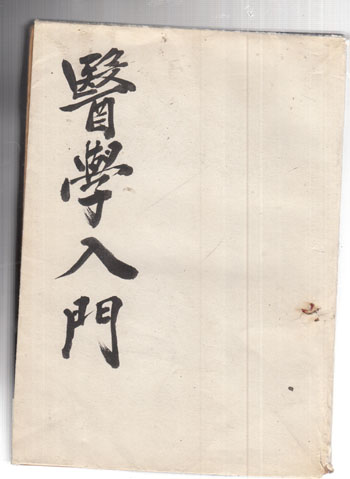 醫學入門